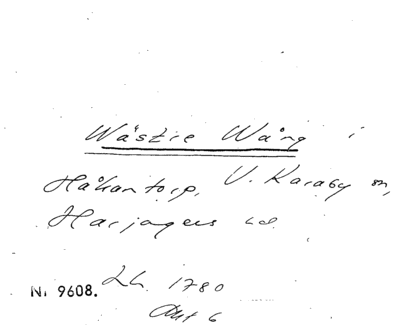 Wästre Wång i
Håkantorp, V. Karaby sn,
Harjagers hd.
Nr 9608. Lh. 1780
Akt 6